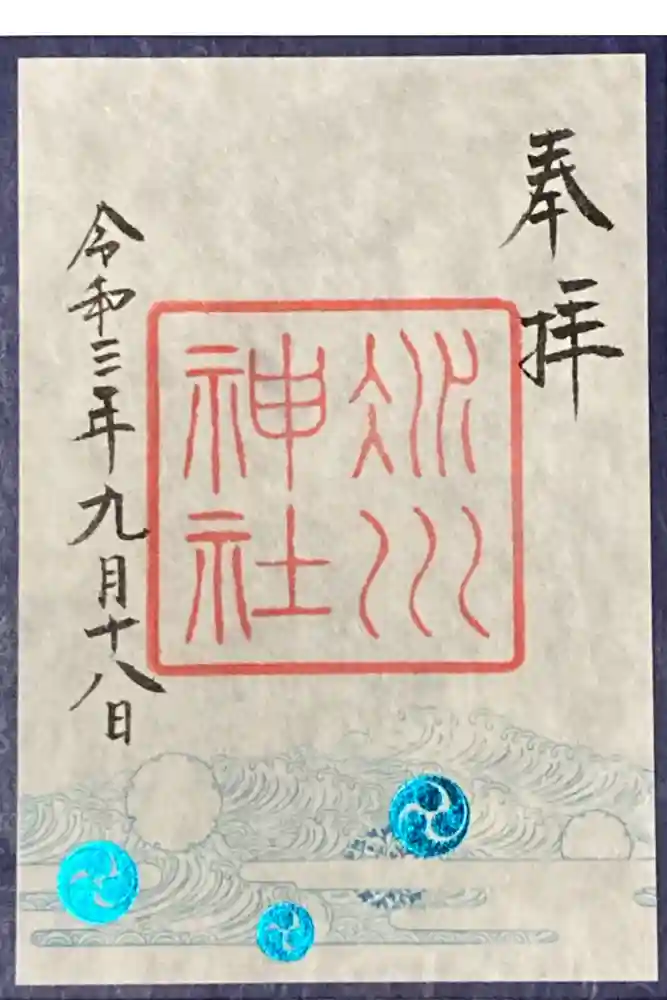 奉拝
氷川
神社
令和三年九月十八日